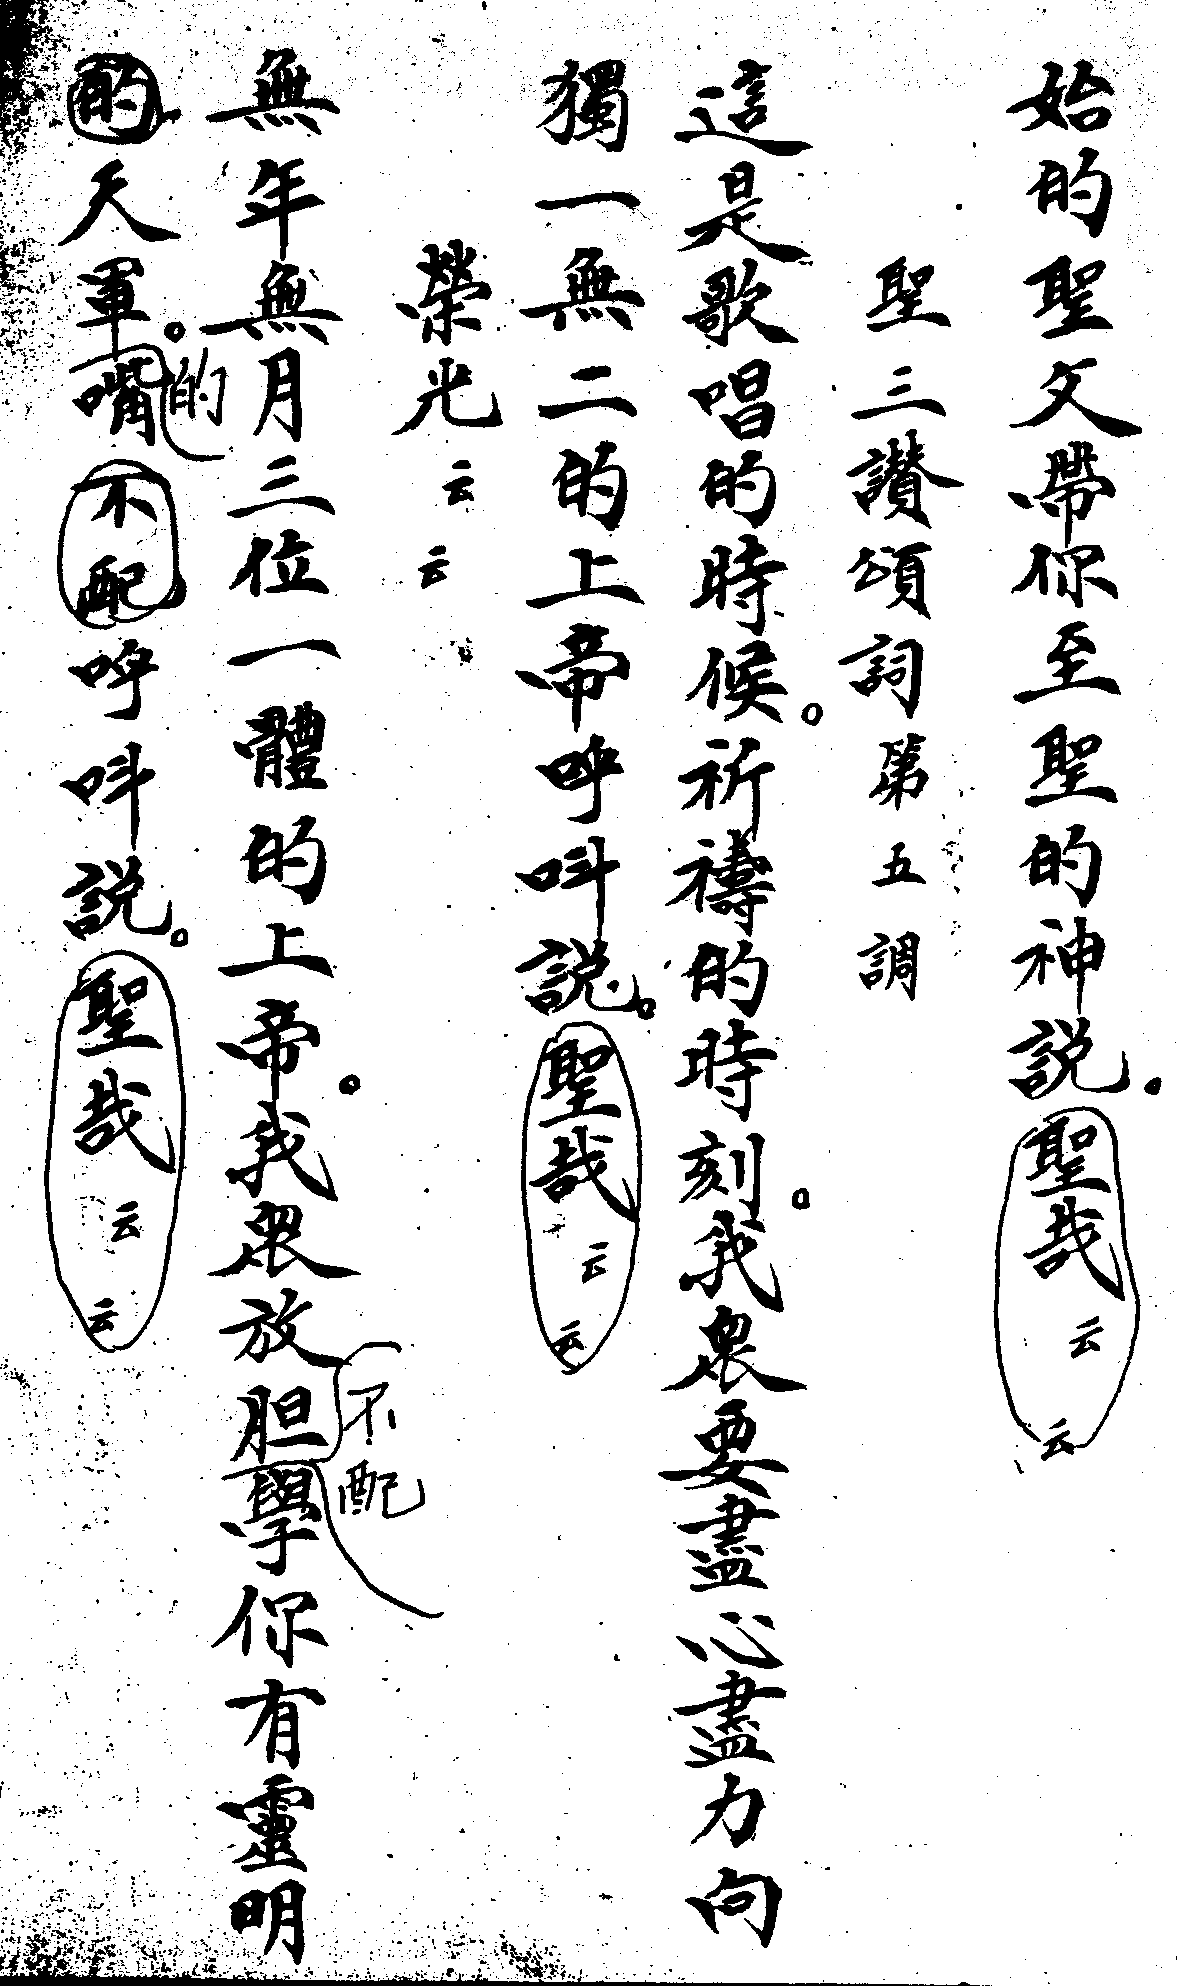 始的聖父帶你至聖的神說。聖哉云云
聖三讚頌詞第五調
這是歌唱的時候。祈禱的時刻。我眾要盡心盡力向
獨一無二的上帝呼呌說。聖哉云云
榮光云云
無年無月三位一體的上帝。我眾放胆學你有靈明
不配
的天軍。嘴不配呼呌說。聖哉云云
的